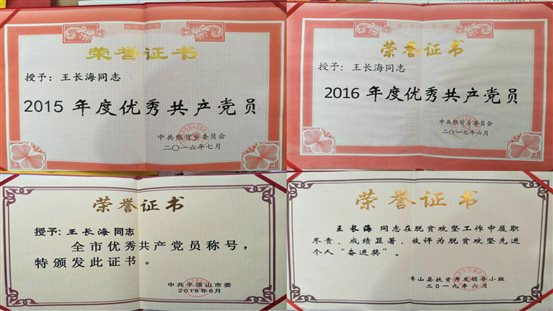 荣誉证书
授予：王长海同志
2015 年度优秀共产党员
中共熊背乡委员会
二〇一六年七月
荣誉证书
授予：王长海同志
2016 年度优秀共产党员
中共熊背乡委员会
二〇一七年六月
荣誉证书
授予：王长海同志
全市优秀共产党员称号，
特颁发此证书。
中共平顶山市委
2018年6月
荣誉证书
王长海 同志在脱贫攻坚工作中履职
尽责、成绩显著，被评为脱贫攻坚先进
个人“奋进奖”。
鲁山县扶贫开发领导小组
二〇一九年六月